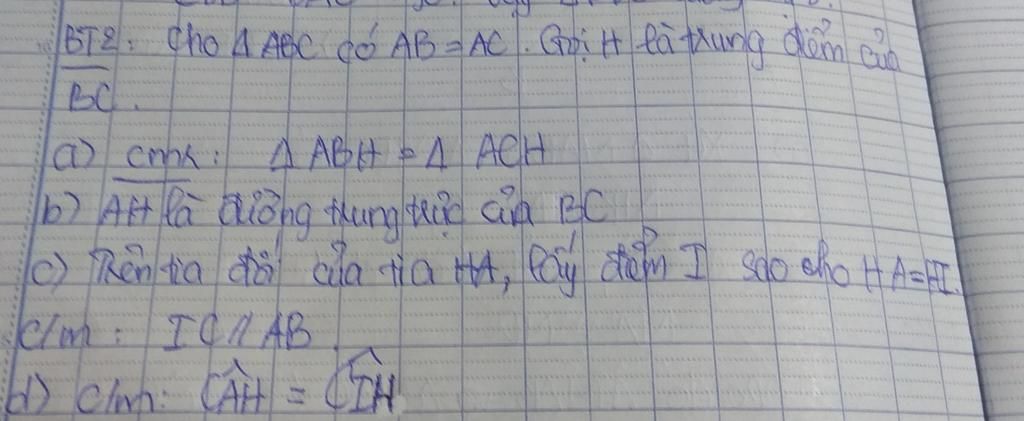 BT2: Cho Δ ABC có AB = AC. Gọi H là trung điểm của
BC.
a) cmh: Δ ABH = Δ ACH
b) AH là đường trung trực của BC
c) Trên tia đối của tia HA, lấy điểm I sao cho HA = HI.
C/m: IC // AB.
d) C/mh: CÂH = CÎH